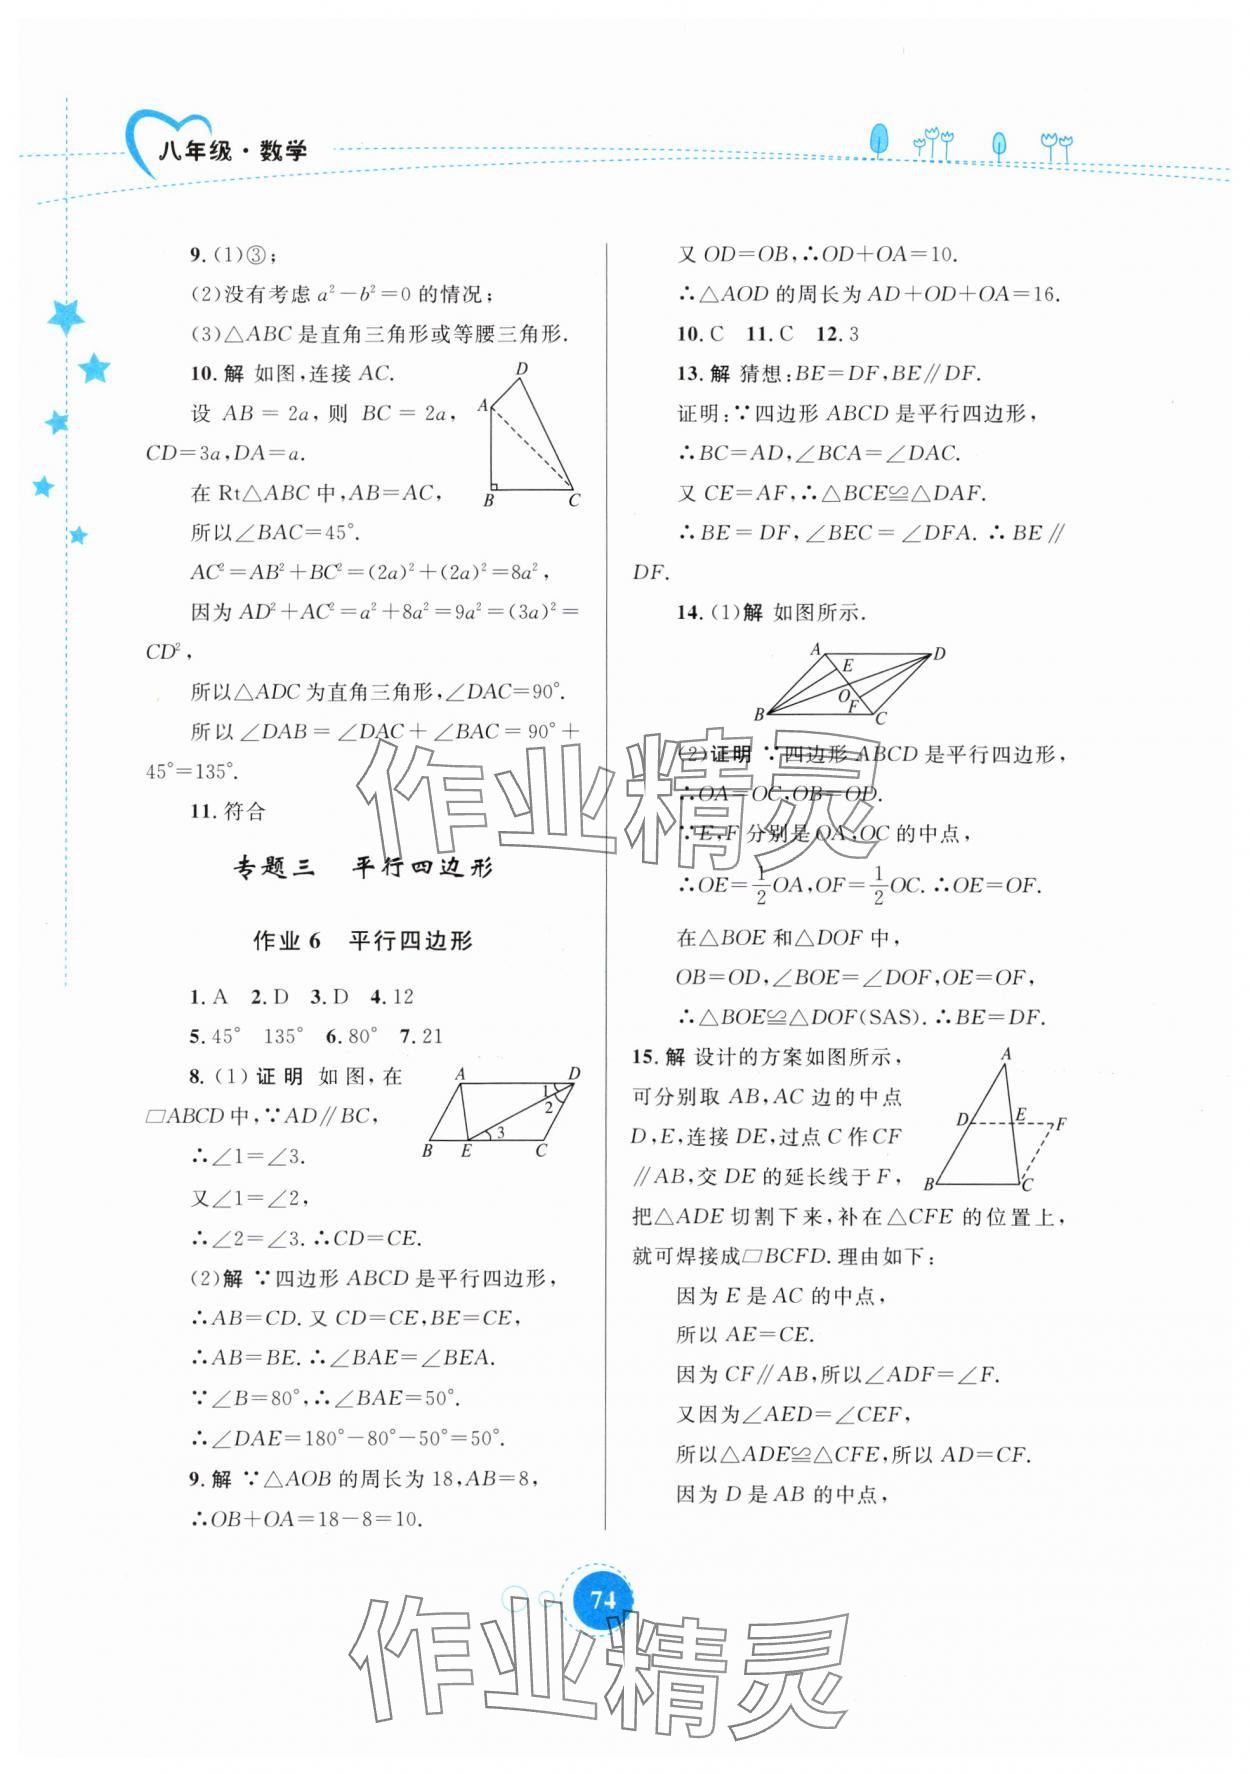 八年级·数学
9.(1)③;
(2)没有考虑 a²-b²=0 的情况;
(3)△ABC 是直角三角形或等腰三角形.
10.解 如图,连接 AC.
设 AB = 2a,则 BC = 2a,
CD=3a,DA=a.
在 Rt△ABC 中,AB=AC,
所以∠BAC=45°.
AC²=AB²+BC²=(2a)²+(2a)²=8a²,
因为 AD²+AC²=a²+8a²=9a²=(3a)²=
CD²,
所以△ADC 为直角三角形,∠DAC=90°.
所以 ∠DAB = ∠DAC + ∠BAC = 90° +
45°=135°.
11.符合
A
B
C
D
专题三 平行四边形
作业 6 平行四边形
1.A 2.D 3.D 4.12
5.45° 135° 6.80° 7.21
8.(1)证明 如图,在
▱ABCD 中,∵AD∥BC,
∴∠1=∠3.
又∠1=∠2,
∴∠2=∠3.∴CD=CE.
A
D
1
2
3
B
E
C
(2)解 ∵四边形 ABCD 是平行四边形,
∴AB=CD.又 CD=CE,BE=CE,
∴AB=BE.∴∠BAE=∠BEA.
∵∠B=80°,∴∠BAE=50°.
∴∠DAE=180°-80°-50°=50°.
9.解 ∵△AOB 的周长为 18,AB=8,
∴OB+OA=18-8=10.
又 OD=OB,∴OD+OA=10.
∴△AOD 的周长为 AD+OD+OA=16.
10.C 11.C 12.3
13.解 猜想:BE=DF,BE∥DF.
证明:∵四边形 ABCD 是平行四边形,
∴BC=AD,∠BCA=∠DAC.
又 CE=AF,∴△BCE≌△DAF.
∴BE = DF,∠BEC = ∠DFA. ∴BE∥
DF.
14.(1)解 如图所示.
A
D
E
O
F
B
C
(2)证明 ∵四边形 ABCD 是平行四边形,
∴OA=OC,OB=OD.
∵E,F 分别是 OA,OC 的中点,
∴OE=1/2OA,OF=1/2OC.∴OE=OF.
在△BOE 和△DOF 中,
OB=OD,∠BOE=∠DOF,OE=OF,
∴△BOE≌△DOF(SAS).∴BE=DF.
15.解 设计的方案如图所示,
可分别取 AB,AC 边的中点
D,E,连接 DE,过点 C 作 CF
∥AB,交 DE 的延长线于 F,
把△ADE 切割下来,补在△CFE 的位置上,
就可焊接成▱BCFD.理由如下:
A
D
E
F
B
C
因为 E 是 AC 的中点,
所以 AE=CE.
因为 CF∥AB,所以∠ADF=∠F.
又因为∠AED=∠CEF,
所以△ADE≌△CFE,所以 AD=CF.
因为 D 是 AB 的中点,
74
作业精灵
作业精灵